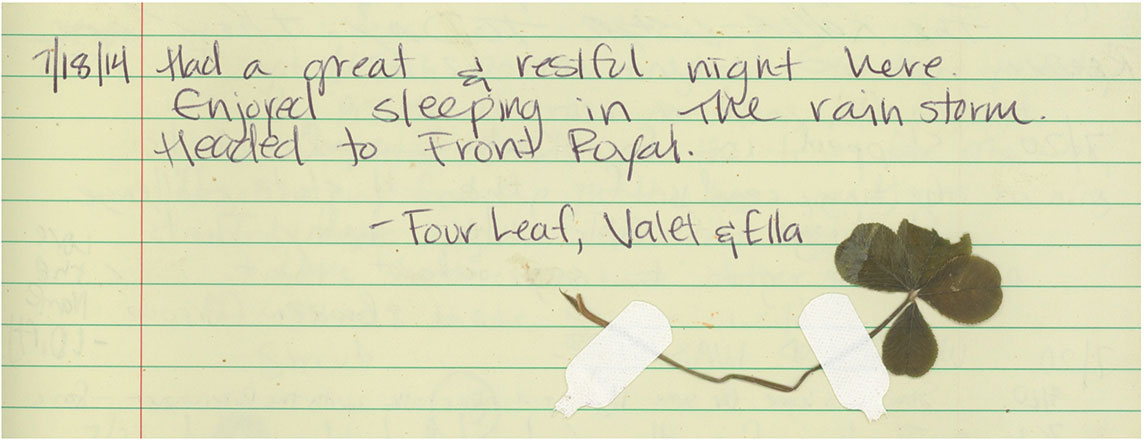 7/18/14 Had a great & restful night here.
Enjoyed sleeping in the rain storm.
Headed to Front Royal.
- Four Leaf, Valet & Ella